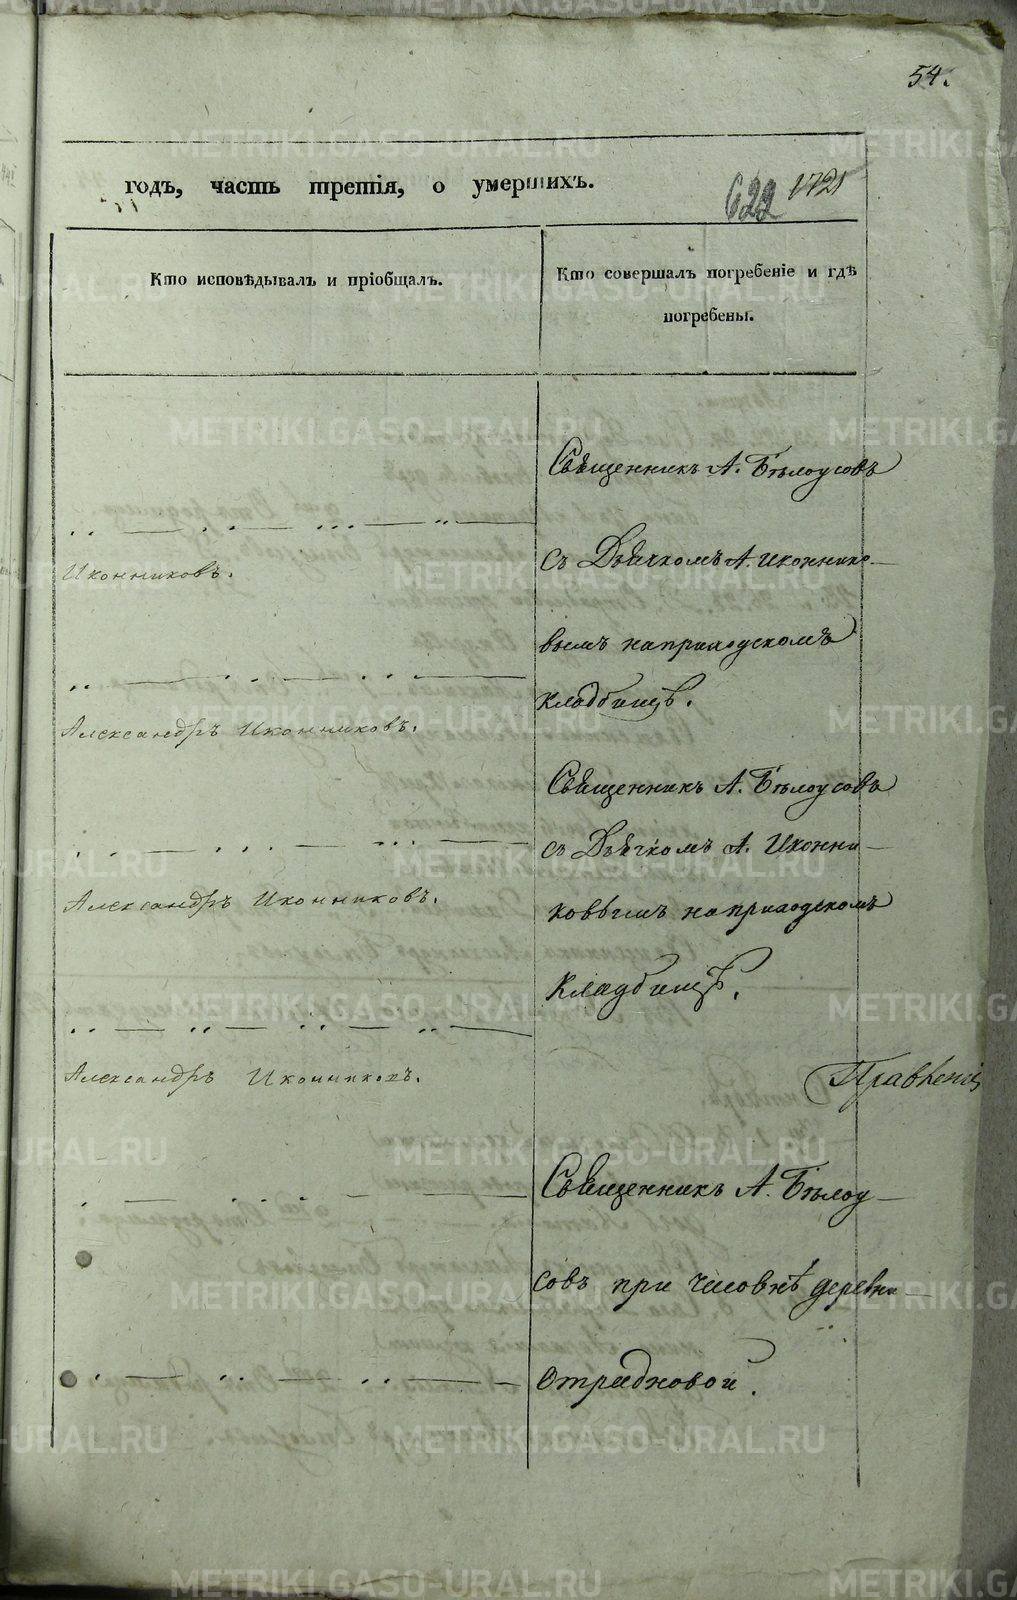 54.
годъ, часть третія, о умершихъ.
622 1721
Кто исповѣдывалъ и пріобщалъ.
Кто совершалъ погребеніе и гдѣ
погребены.
Священникъ А. Бѣлоусовъ
Иконниковъ.
съ Дьячкомъ А. Иконнико-
вымъ на приходскомъ
кладбищѣ.
Александръ Иконниковъ.
Священникъ А. Бѣлоусовъ
съ Дьячкомъ А. Иконни-
Александръ Иконниковъ.
ковымъ на приходскомъ
кладбищѣ.
Александръ Иконниковъ.
Священникъ А. Бѣлоу-
совъ при часовнѣ деревни
Отрадновой.
METRIKI.GASO-URAL.RU